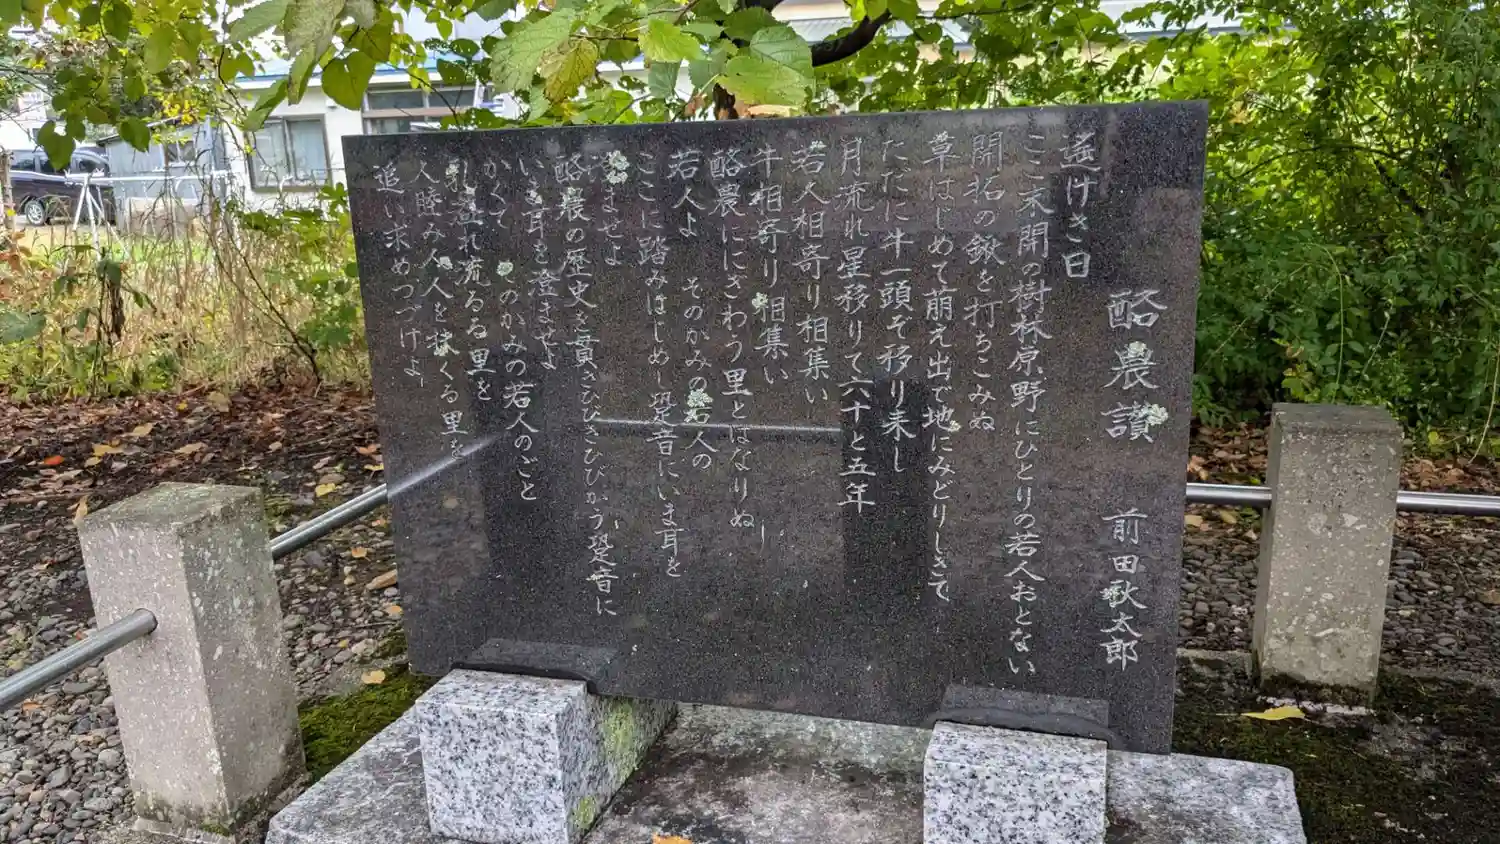 酪農讃　前田秋太郎
遥けき日
ここ未開の樹林原野にひとりの若人おとない
開拓の鍬を打ちこみぬ
草はじめて萌え出で地にみどりしきて
ただに牛一頭ぞ移り来し
月流れ星移りて六十と五年
若人相寄り相集い
牛相寄り相集い
酪農ににぎわう里とはなりぬ
若人よ　そのかみの若人の
ここに踏みはじめし跫音にいま耳を
ませよ
酪農の歴史を貫きひびきひびかう跫音に
いま耳を澄ませよ
かくて　そのかみの若人のごと
乳溢れ流るる里を
人睦み人人を扶くる里を
追い求めつづけよ